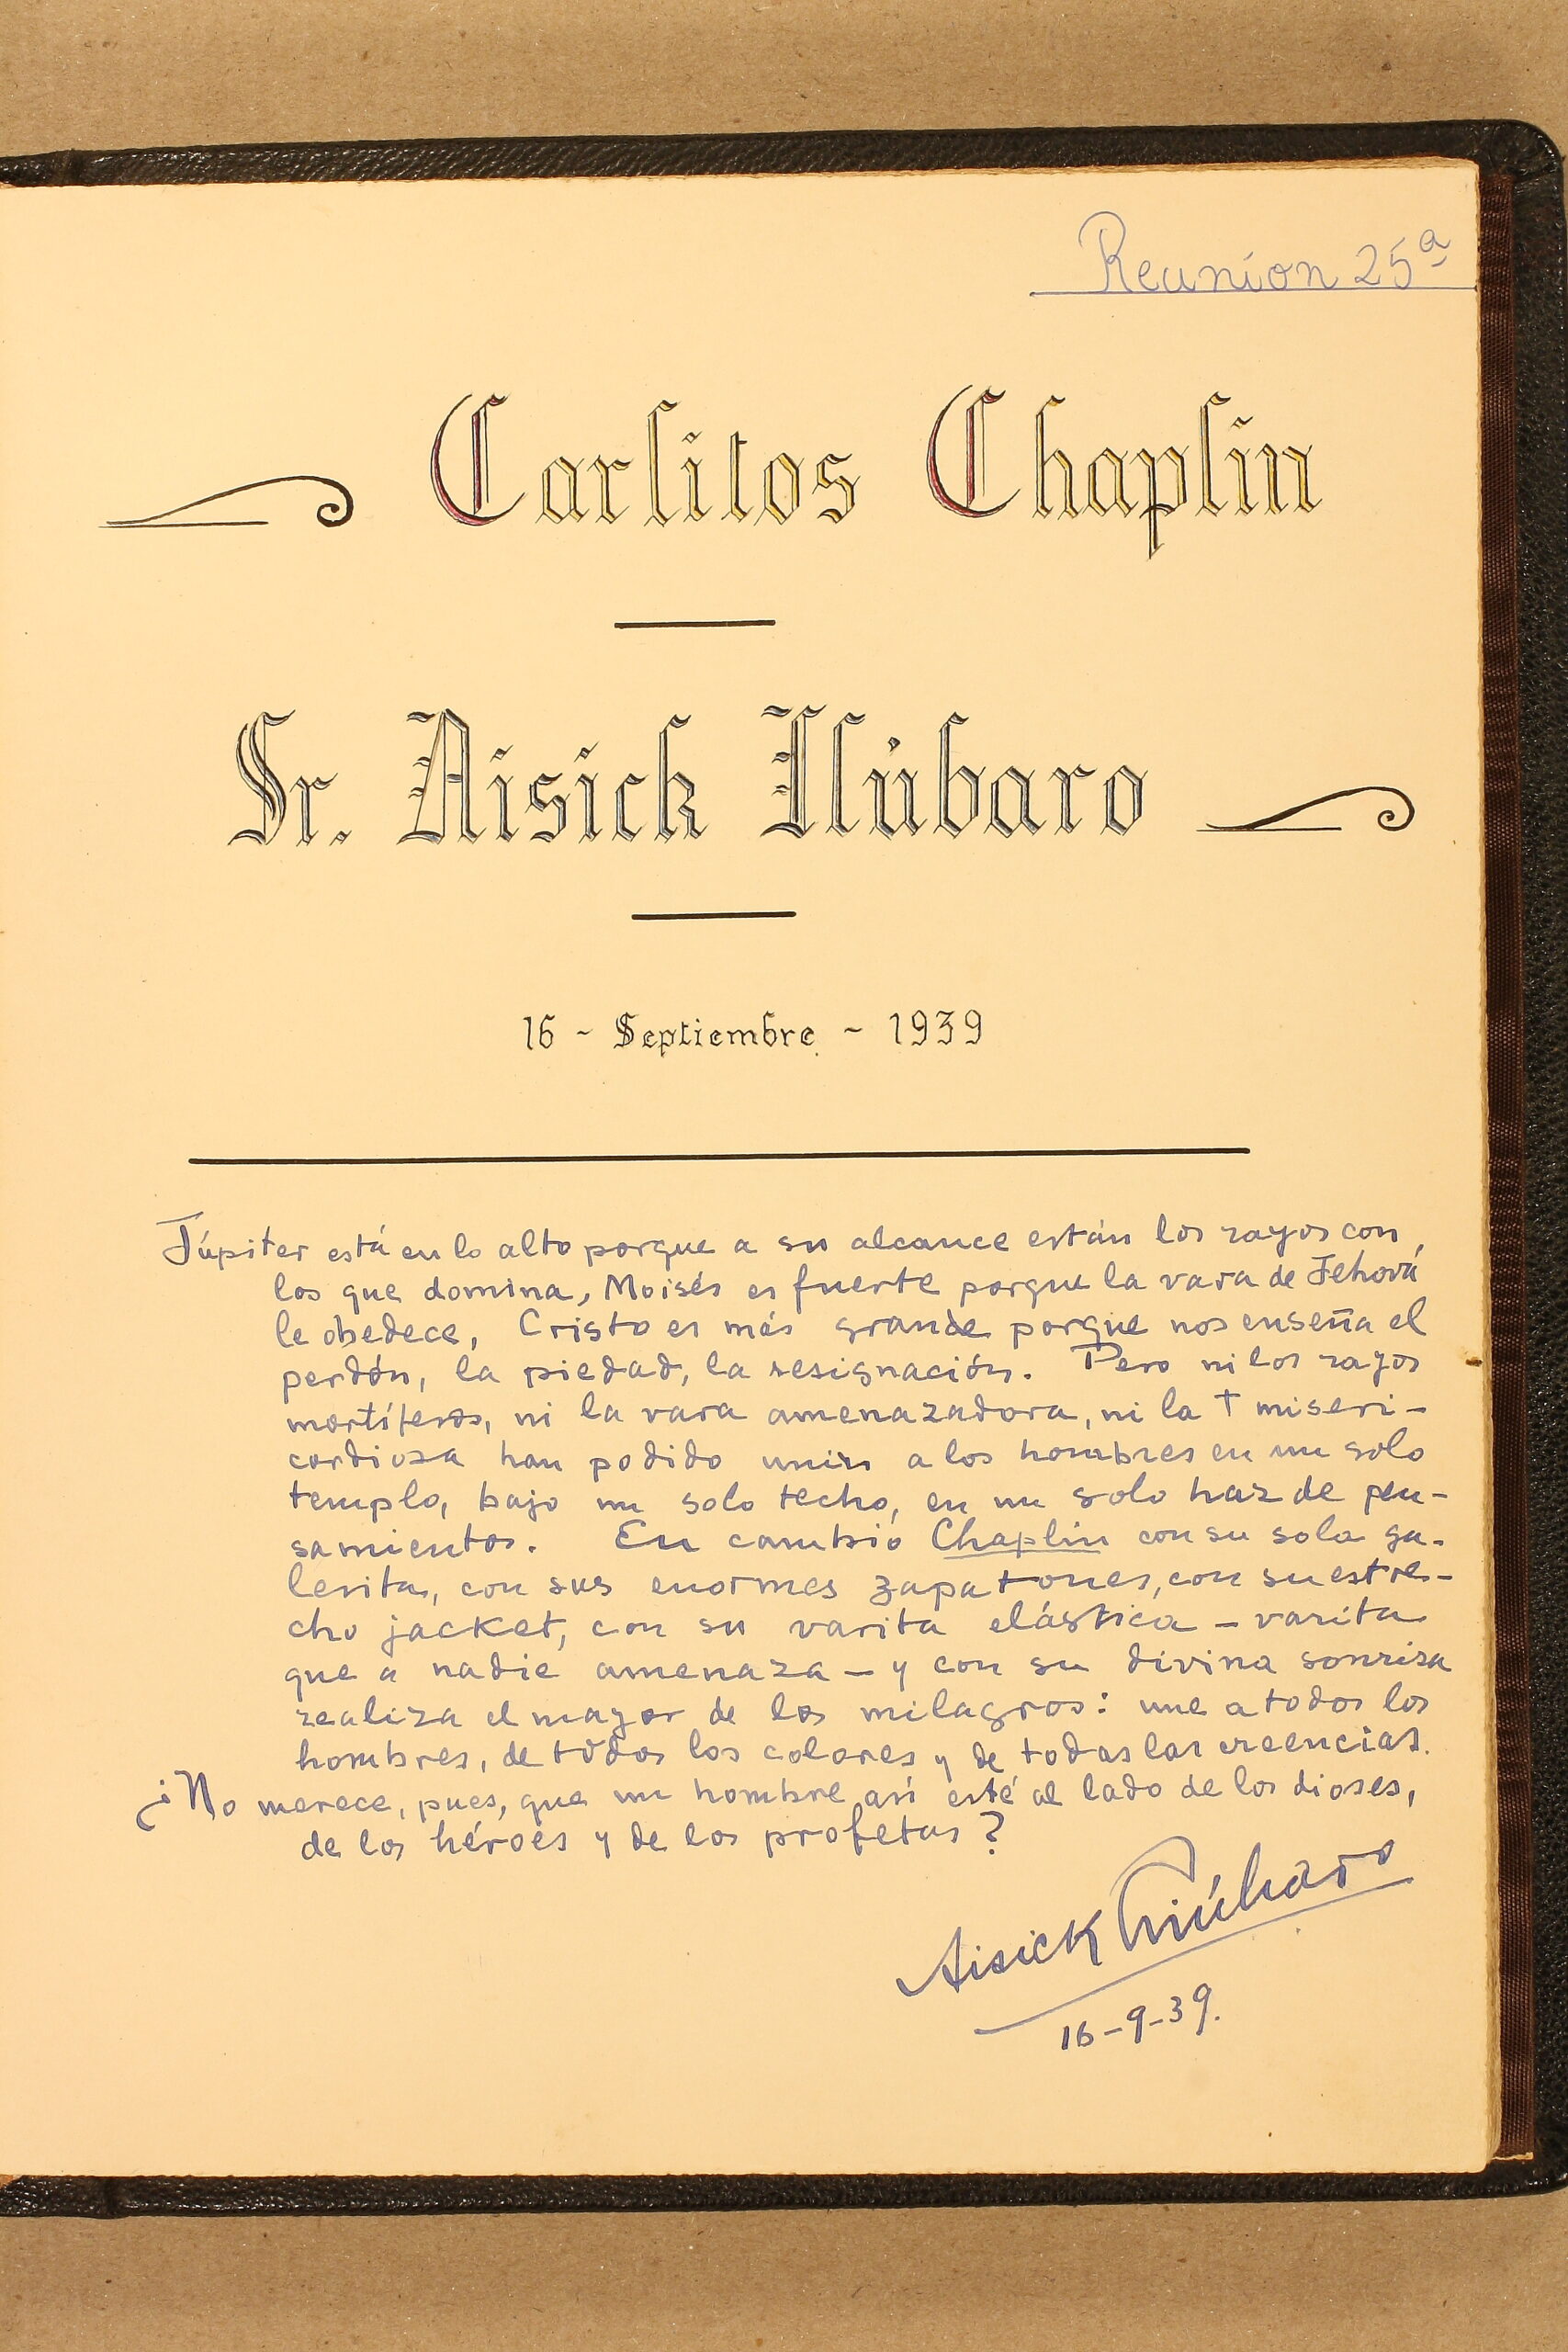 Reunion 25ª
Carlitos Chaplin
Sr. Aisick Ilúbaro
16 - Septiembre - 1939
Júpiter está en lo alto porque a su alcance están los rayos con
los que domina, Moisés es fuerte porque la vara de Jehová
le obedece, Cristo es más grande porque nos enseña el
perdón, la piedad, la resignación. Pero ni los rayos
mortíferos, ni la vara amenazadora, ni la † miseri-
cordiosa han podido unir a los hombres en un solo
templo, bajo un solo techo, en un solo haz de pen-
samientos. En cambio Chaplin con su sola ga-
lerita, con sus enormes zapatones, con su estre-
cho jacket, con su varita elástica - varita
que a nadie amenaza - y con su divina sonrisa
realiza el mayor de los milagros: une a todos los
hombres, de todos los colores y de todas las creencias.
¿No merece, pues, que un hombre así esté al lado de los dioses,
de los héroes y de los profetas?
Aisick
16-9-39.